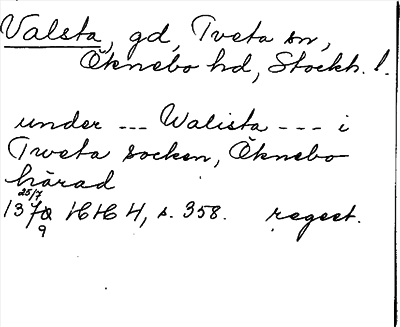 Valsta, gd, Tveta sn,
Öknebo hd, Stockh. l.
under --- Walista --- i
Tweta socken, Öknebo
härad
25/7
1379 HH 4, s. 358. regest.